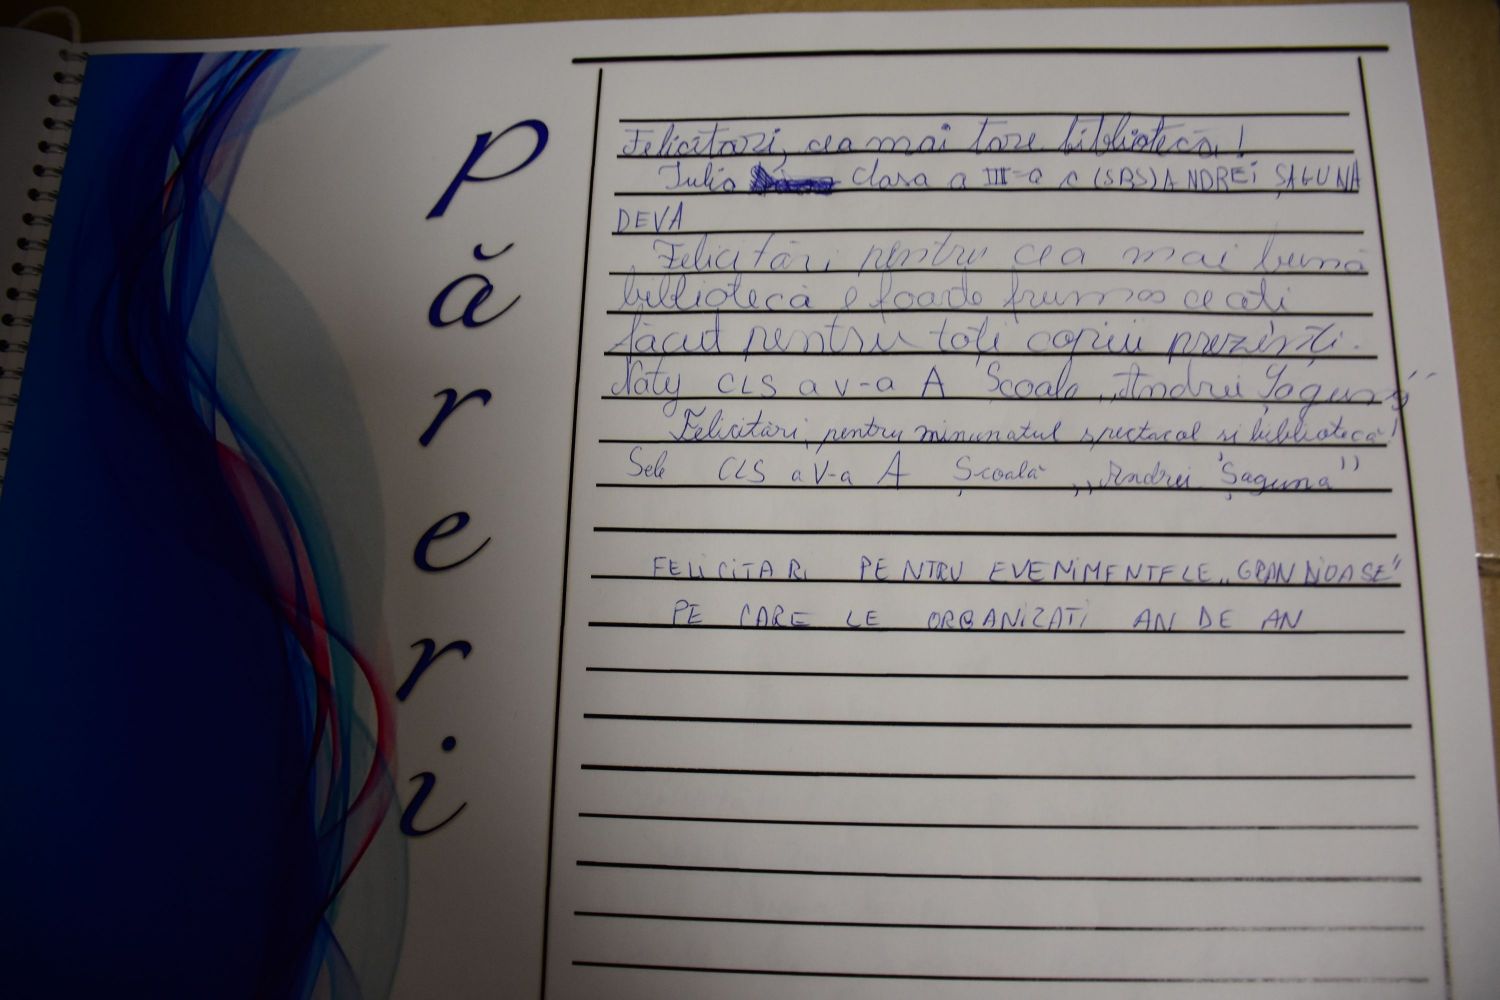 păreri
Felicitări, cea mai tare bibliotecă!
Iulia Clasa a III-a C (SBS) ANDREI ȘAGUNA
DEVA
Felicitări pentru cea mai bună
bibliotecă e foarte frumos ce ati
făcut pentru toți copiii prezinți.
Naty CLS a V-a A Școala „Andrei Șaguna”
Felicitări, pentru minunatul spectacol și bibliotecă!
Sele CLS a V-a A Școală „Andrei Șaguna”
FELICITARI PENTRU EVENIMENTELE „GRANDIOASE”
PE CARE LE ORGANIZATI AN DE AN